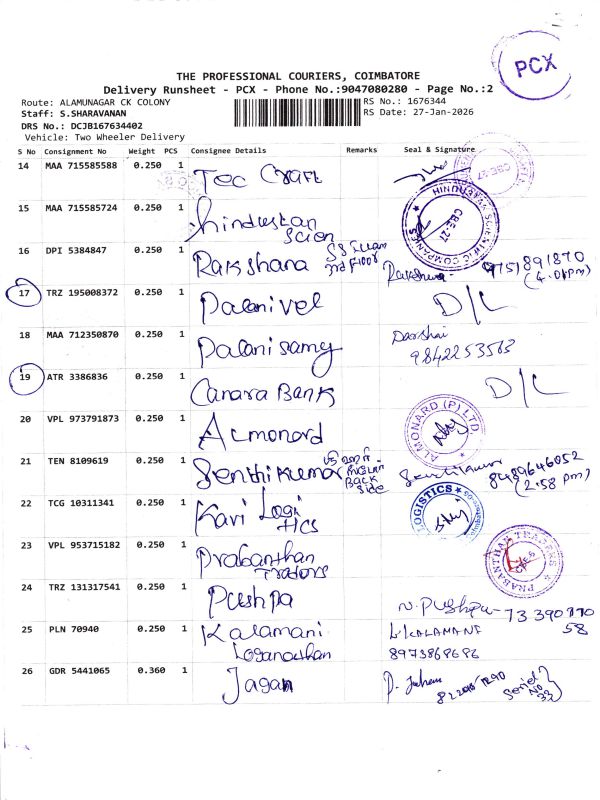 PCX
THE PROFESSIONAL COURIERS, COIMBATORE
Delivery Runsheet - PCX - Phone No.:9047080280 - Page No.:2
Route: ALAMUNAGAR CK COLONY
RS No.: 1676344
Staff: S.SHARAVANAN
RS Date: 27-Jan-2026
DRS No.: DCJB167634402
Vehicle: Two Wheeler Delivery
S No Consignment No Weight PCS Consignee Details Remarks Seal & Signature
14 MAA 715585588 0.250 1 Tec Craft
15 MAA 715585724 0.250 1 hindustan
Scien
HINDUSTAN SCIENTIFIC COMPANIES
CBE-27
16 DPI 5384847 0.250 1 Rakshana 3rd Floor 9751891870
(4.01pm)
17 TRZ 195008372 0.250 1 Palanivel D/L
18 MAA 712350870 0.250 1 Palanisamy Darshai
9842253563
19 ATR 3386836 0.250 1 Canara Bank D/L
20 VPL 973791873 0.250 1 Almonard
ALMONARD (P) LTD.
21 TEN 8109619 0.250 1 Senthilkumar Back Side 8489646052
(2.58 pm)
22 TCG 10311341 0.250 1 Kavi Logi
tics
LOGISTICS
23 VPL 953715182 0.250 1 Prabanthan
Traders
PRABANTHAN TRADERS
24 TRZ 131317541 0.250 1 Pushpa N. Pushpa - 73390770
58
25 PLN 70940 0.250 1 Kalamani
Loganathan
L. KALAMANI
8973869696
26 GDR 5441065 0.360 1 Jagan
Serial
No
33